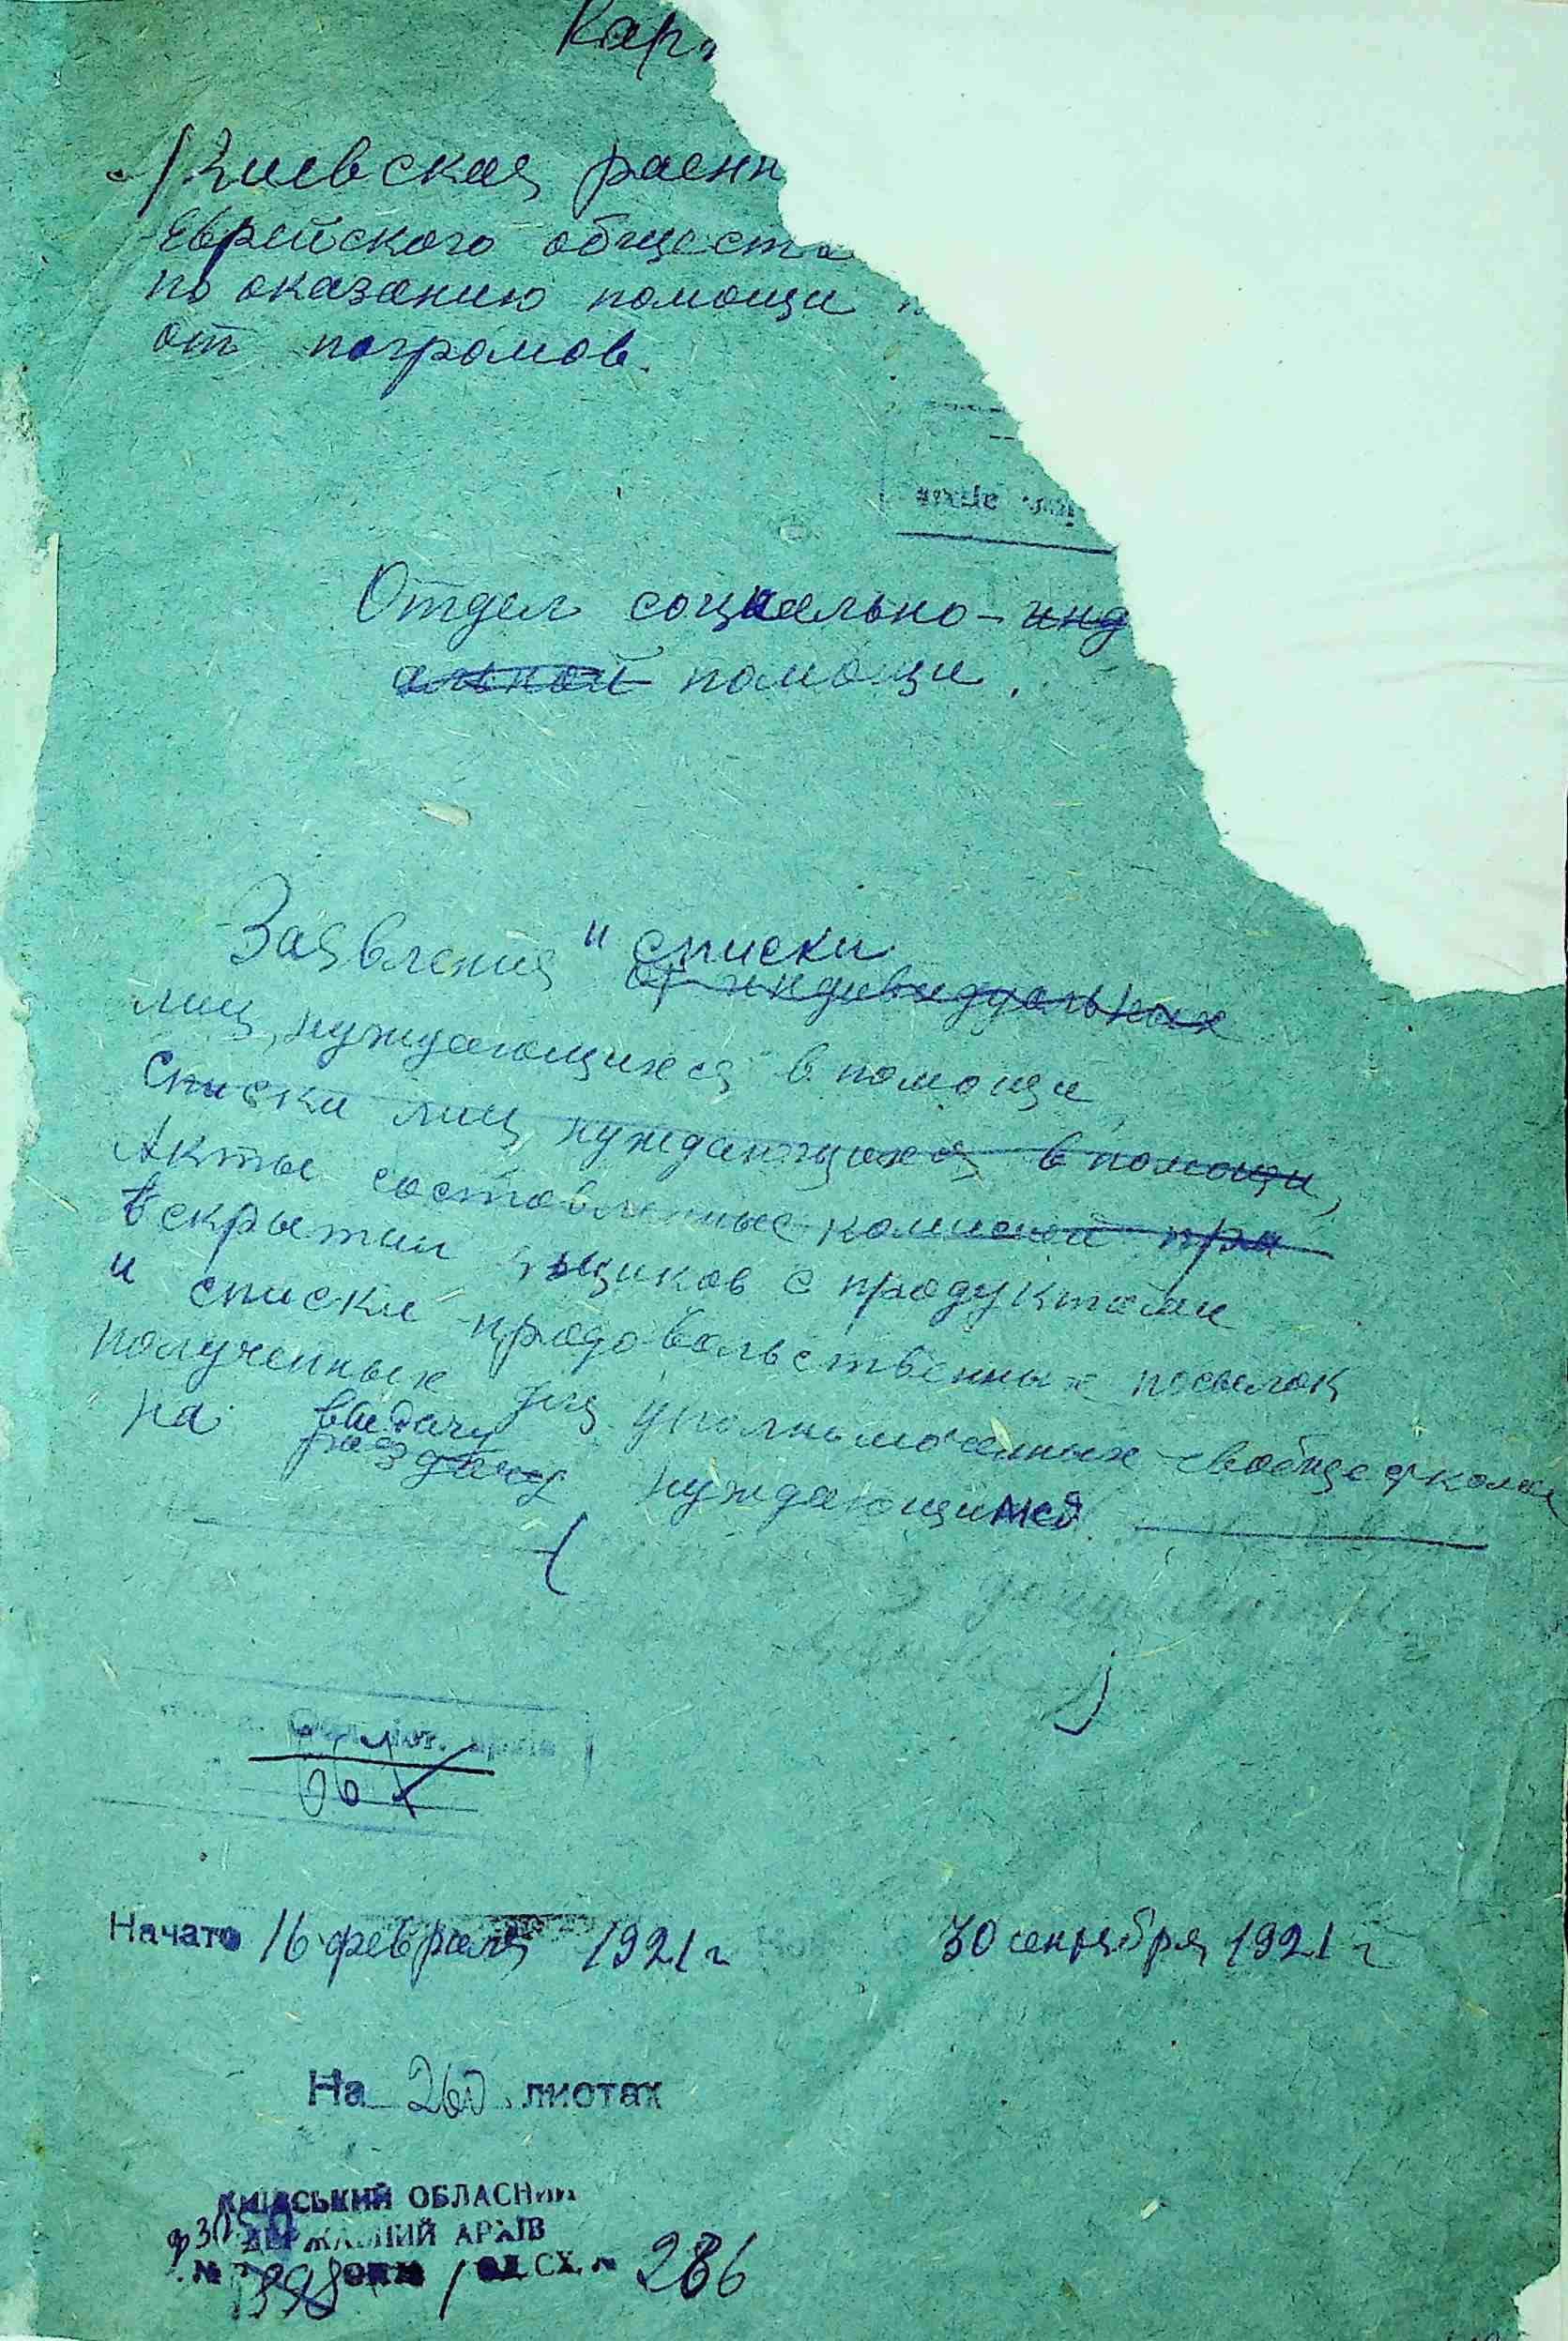 Кар
Киевская раенн
Еврейского общест
по оказанию помощи п
от погромов.
Отдел социально-инд
альной помощи.
Заявления и списки
от индивидуальных
лиц, нуждающихся в помощи,
Списки лиц нуждающихся в помощи,
Акты составленные комисией при
вскрытии ящиков с продуктами
и списки продовольственных посылок
полученных для уполномоченных
на выдачу
раздачу нуждающимся.
Обл. архів
Начато 16 февраля 1921 г 30 сентября 1921 г
На 260 листах
КИЇВСЬКИЙ ОБЛАСНИЙ
ДЕРЖАВНИЙ АРХІВ
ф 3050
№ оп. 1 ОД. СХ. № 286